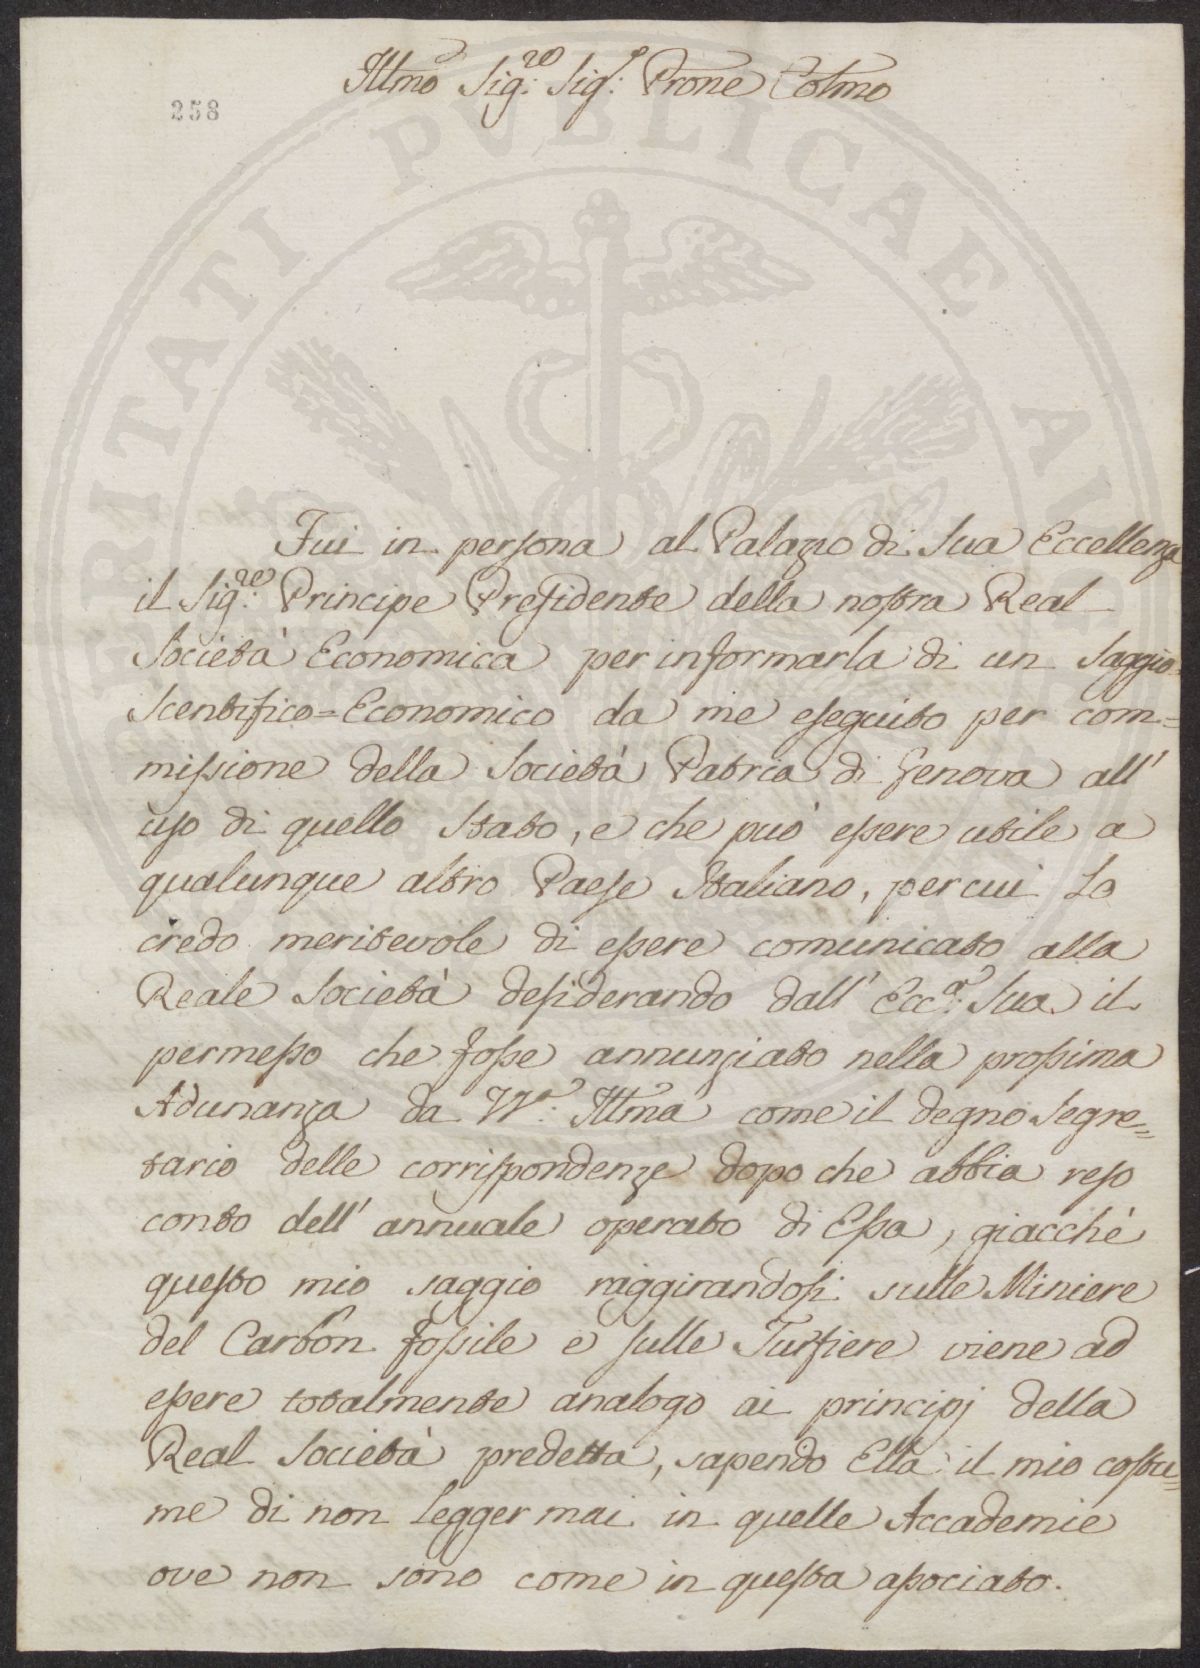 Illmo Sig:re Sig:r Prone Colmo
258
Fui in persona al Palazzo di Sua Eccellenza
il Sig:re Principe Presidente della nostra Real
Società Economica per informarla di un Saggio
Scentifico=Economico da me eseguito per com=
missione della Società Patria di Genova all'
uso di quello Stato, e che può essere utile a
qualunque altro Paese Italiano, per cui Lo
credo meritevole di essere comunicato alla
Reale Società desiderando dall' Ecc:a Sua il
permesso che fosse annunziato nella prossima
Adunanza da VS:a Illma come il degno Segre=
tario delle corrispondenze dopo che abbia reso
conto dell' annuale operato di Essa, giacchè
questo mio saggio raggirandosi sulle Miniere
del Carbon fossile e sulle Turfiere viene ad
essere totalmente analogo ai principj della
Real Società predetta, sapendo Ella il mio costu=
me di non legger mai in quelle Accademie
ove non sono come in questa associato.
PROSPERITATI PUBLICAE AUGENDAE